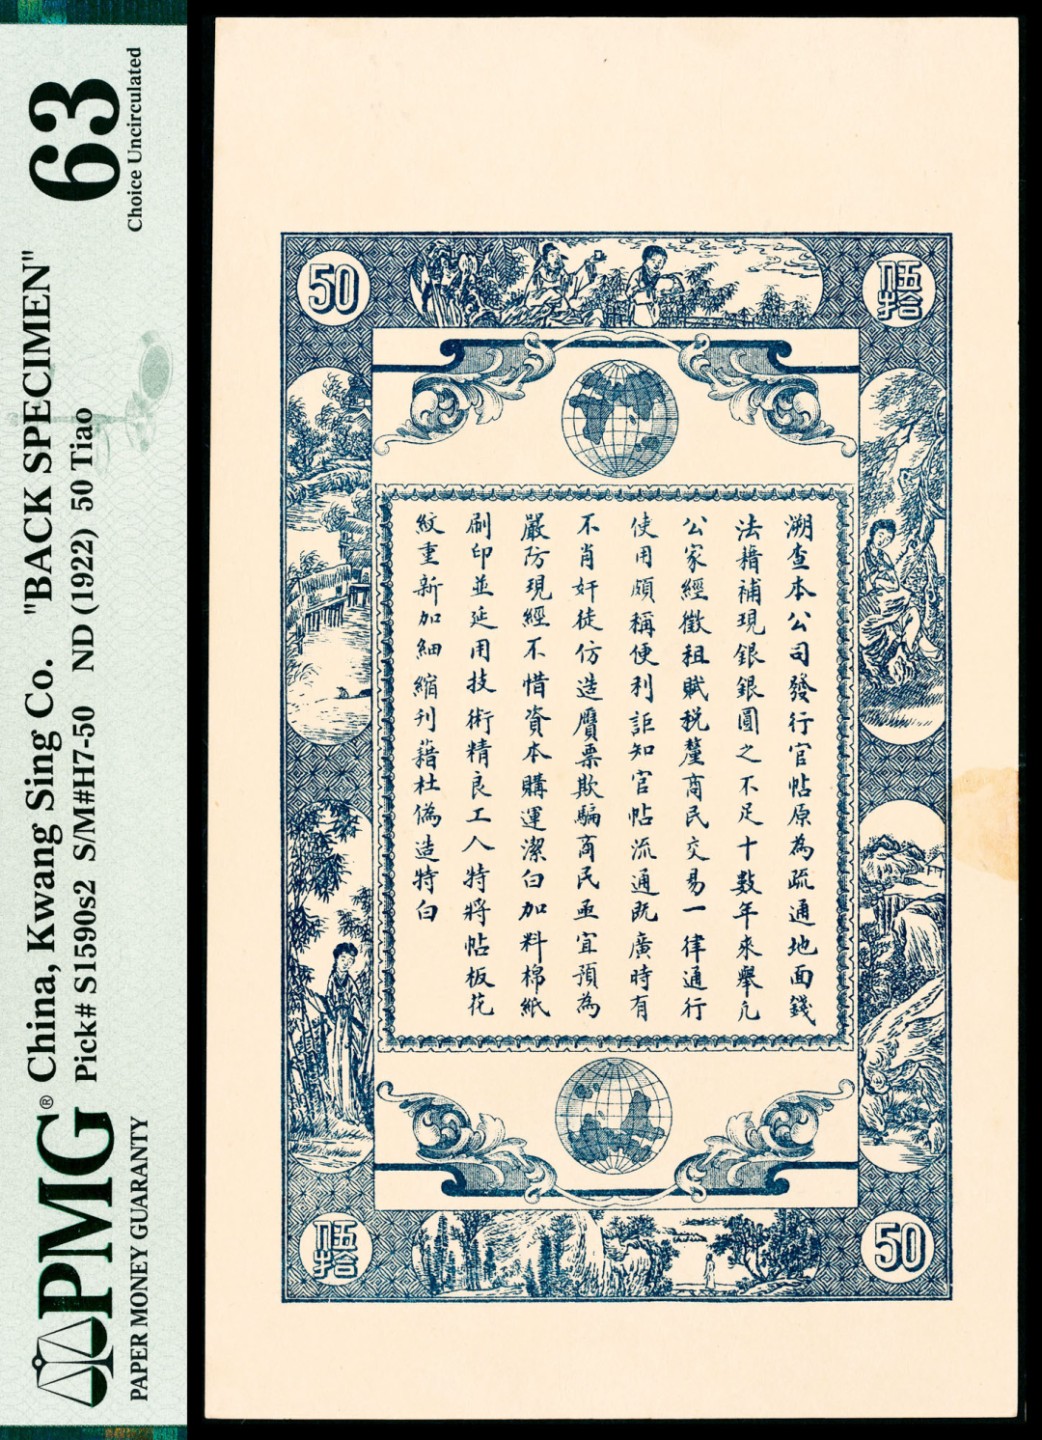 PMG®
PAPER MONEY GUARANTY
China, Kwang Sing Co. "BACK SPECIMEN"
Pick# S1590s2 S/M#H7-50 ND (1922) 50 Tiao
63
Choice Uncirculated
50
伍拾
溯查本公司發行官帖原為疏通地面錢
法藉補現銀銀圓之不足十數年來舉凡
公家經徵租賦稅釐商民交易一律通行
使用頗稱便利詎知官帖流通既廣時有
不肖奸徒仿造贋票欺騙商民亟宜預為
嚴防現經不惜資本購運潔白加料棉紙
刷印並延用技術精良工人特將帖板花
紋重新加細縮刊藉杜偽造特白
伍拾
50